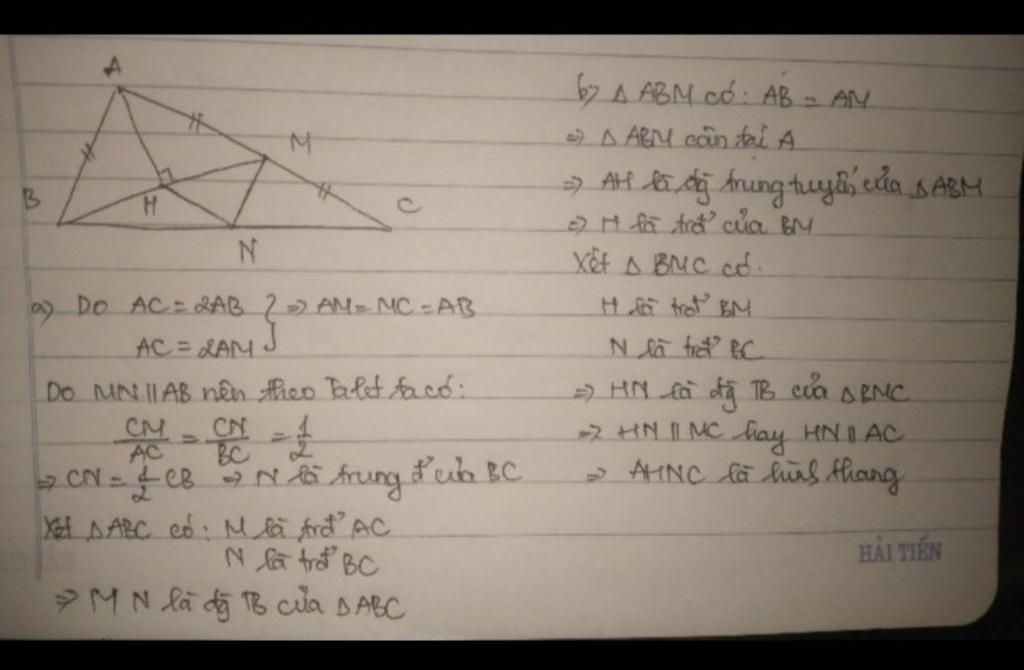 A
M
B
H
C
N
a) Do AC = 2AB } => AM = MC = AB
AC = 2AM
Do MN || AB nên theo Talet ta có:
CM/AC = CN/BC = 1/2
=> CN = 1/2 CB => N là trung đ' của BC
Xét △ABC có: M là trđ' AC
N là trđ' BC
=> MN là đg TB của △ABC
b) △ABM có: AB = AM
=> △ABM cân tại A
=> AH là đg trung tuyến của △ABM
=> H là trđ' của BM
Xét △BMC có.
H là trđ' BM
N là trđ' BC
=> HN là đg TB của △BMC
=> HN || MC hay HN || AC
=> AHNC là hình thang
HẢI TIẾN